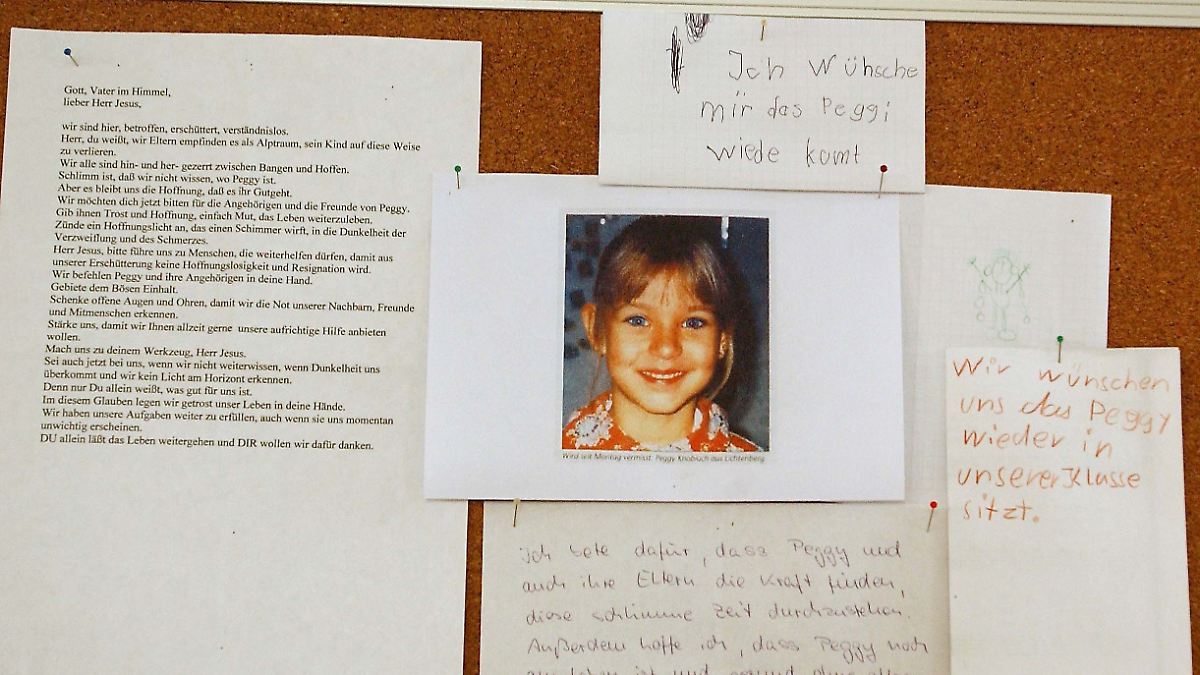 Gott, Vater im Himmel,
lieber Herr Jesus,
wir sind hier, betroffen, erschüttert, verständnislos.
Herr, du weißt, wir Eltern empfinden es als Alptraum, sein Kind auf diese Weise
zu verlieren.
Wir alle sind hin- und her- gezerrt zwischen Bangen und Hoffen.
Schlimm ist, daß wir nicht wissen, wo Peggy ist.
Aber es bleibt uns die Hoffnung, daß es ihr Gutgeht.
Wir möchten dich jetzt bitten für die Angehörigen und die Freunde von Peggy.
Gib ihnen Trost und Hoffnung, einfach Mut, das Leben weiterzuleben.
Zünde ein Hoffnungslicht an, das einen Schimmer wirft, in die Dunkelheit der
Verzweiflung und des Schmerzes.
Herr Jesus, bitte führe uns zu Menschen, die weiterhelfen dürfen, damit aus
unserer Erschütterung keine Hoffnungslosigkeit und Resignation wird.
Wir befehlen Peggy und ihre Angehörigen in deine Hand.
Gebiete dem Bösen Einhalt.
Schenke offene Augen und Ohren, damit wir die Not unserer Nachbarn, Freunde
und Mitmenschen erkennen.
Stärke uns, damit wir Ihnen allzeit gerne unsere aufrichtige Hilfe anbieten
wollen.
Mach uns zu deinem Werkzeug, Herr Jesus.
Sei auch jetzt bei uns, wenn wir nicht weiterwissen, wenn Dunkelheit uns
überkommt und wir kein Licht am Horizont erkennen.
Denn nur Du allein weißt, was gut für uns ist.
Im diesem Glauben legen wir getrost unser Leben in deine Hände.
Wir haben unsere Aufgaben weiter zu erfüllen, auch wenn sie uns momentan
unwichtig erscheinen.
DU allein läßt das Leben weitergehen und DIR wollen wir dafür danken.
Ich wühsche
mir das Peggi
wiede komt
Wird seit Montag vermisst: Peggy Knobloch aus Lichtenberg.
Wir wünschen
uns das Peggy
wieder in
unserer Klasse
sitzt.
Ich bete dafür, dass Peggy und
auch ihre Eltern die Kraft finden,
diese schlimme Zeit durchzustehen.
Außerdem hoffe ich, dass Peggy noch
am Leben ist und gesund ohne